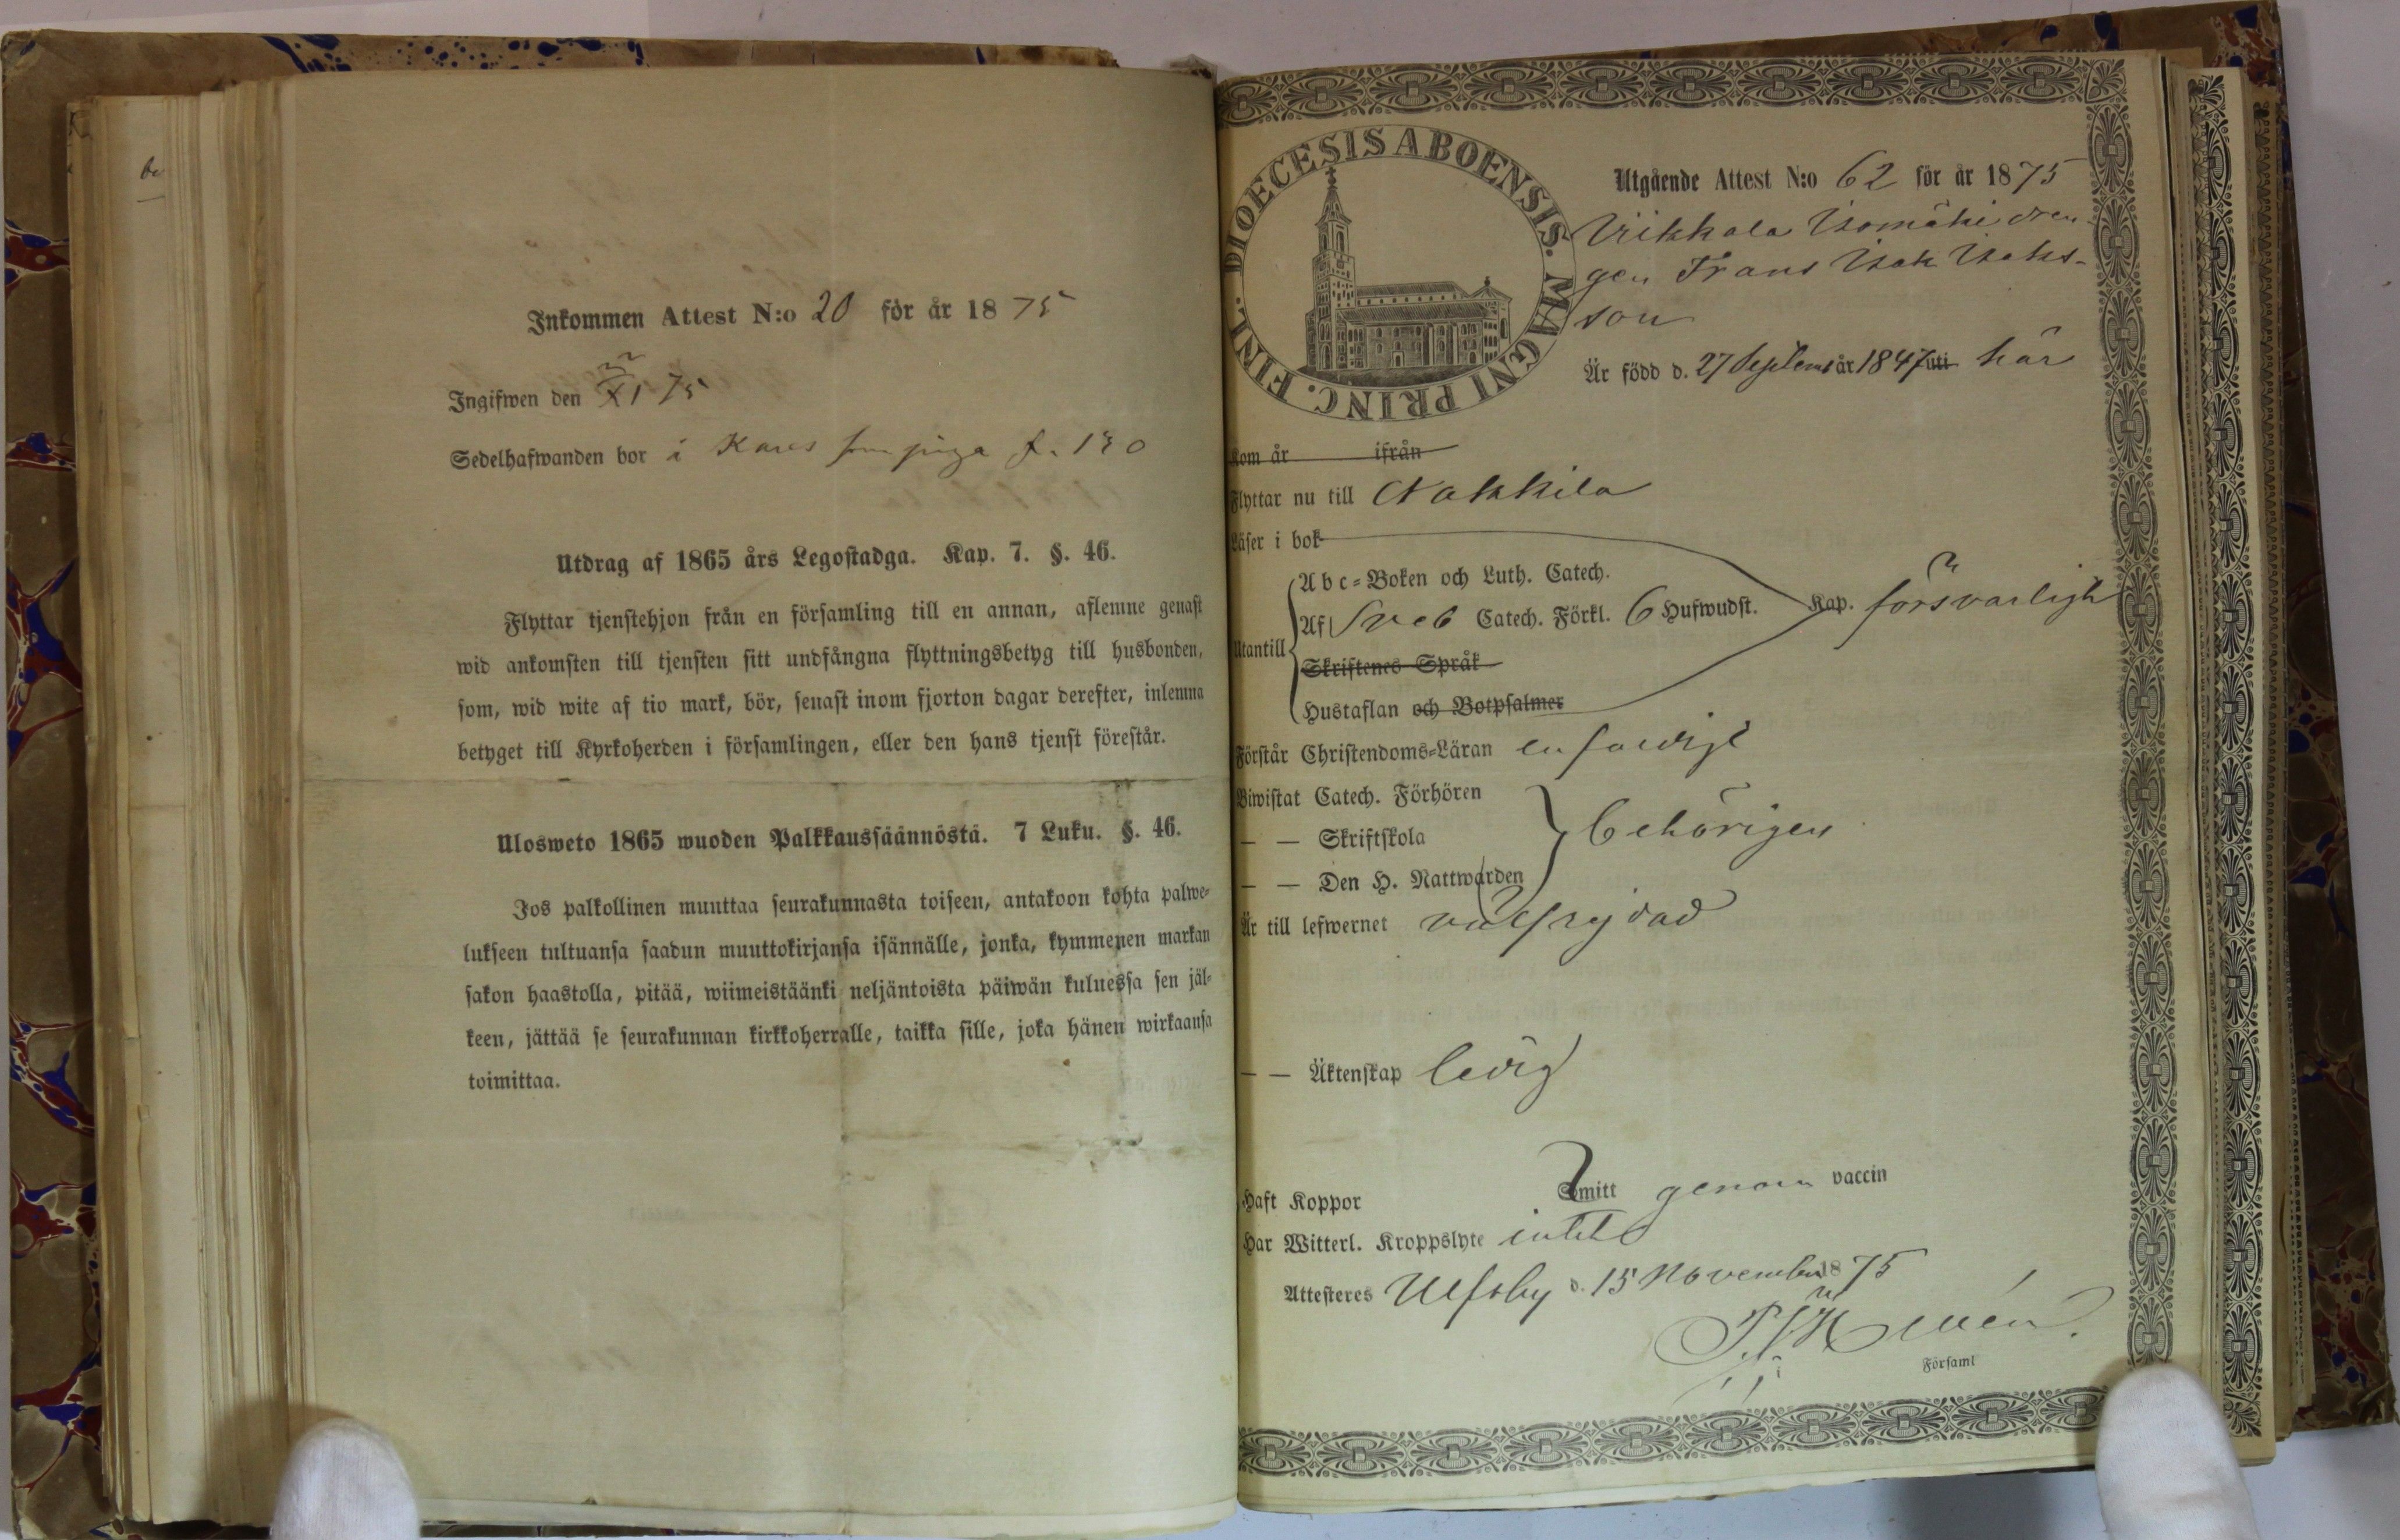 be
Inkommen Attest N:o 20 för år 1875
Ingifwen den XI 75
Sedelhafwanden bor i Kares som piga f. 130
Utdrag af 1865 års Legostadga. Kap. 7. §. 46.
Flyttar tjenstehjon från en församling till en annan, aflemne genast
wid ankomsten till tjensten sitt undfångna flyttningsbetyg till husbonden,
som, wid wite af tio mark, bör, senast inom fjorton dagar derefter, inlemna
betyget till Kyrkoherden i församlingen, eller den hans tjenst förestår.
Ulosweto 1865 wuoden Palkkaussäännöstä. 7 Luku. §. 46.
Jos palkollinen muuttaa seurakunnasta toiseen, antakoon kohta palwe-
lukseen tultuansa saadun muuttokirjansa isännälle, jonka, kymmenen markan
sakon haastolla, pitää, wiimeistäänki neljäntoista päiwän kuluessa sen jäl-
keen, jättää se seurakunnan kirkkoherralle, taikka sille, joka hänen wirkaansa
toimittaa.
DIOECESIS ABOENSIS. MAGNI PRINC. FINL.
Utgående Attest N:o 62 för år 1875
Viikkala Isomäki dren
gen Frans Isak Isaks-
son
Är född d. 27 Septem år 1847 uti här
Kom år ifrån
Flyttar nu till Nakkila
Läser i bok
Utantill
Abc-Boken och Luth. Catech.
Af Sveb Catech. Förkl. 6 Hufwudst. Kap. försvarligt
Skriftenes Språk
Hustaflan och Botpsalmer
Förstår Christendoms-Läran enfaldigt
Biwistat Catech. Förhören
— — Skriftskola behörigen
— — Den H. Nattwarden
Är till lefwernet välfrejdad
— — Äktenskap ledig
Haft Koppor Smitt genom vaccin
Har Witterl. Kroppslyte intet
Attesteres Ulfsby d. 15 November 1875
Församl